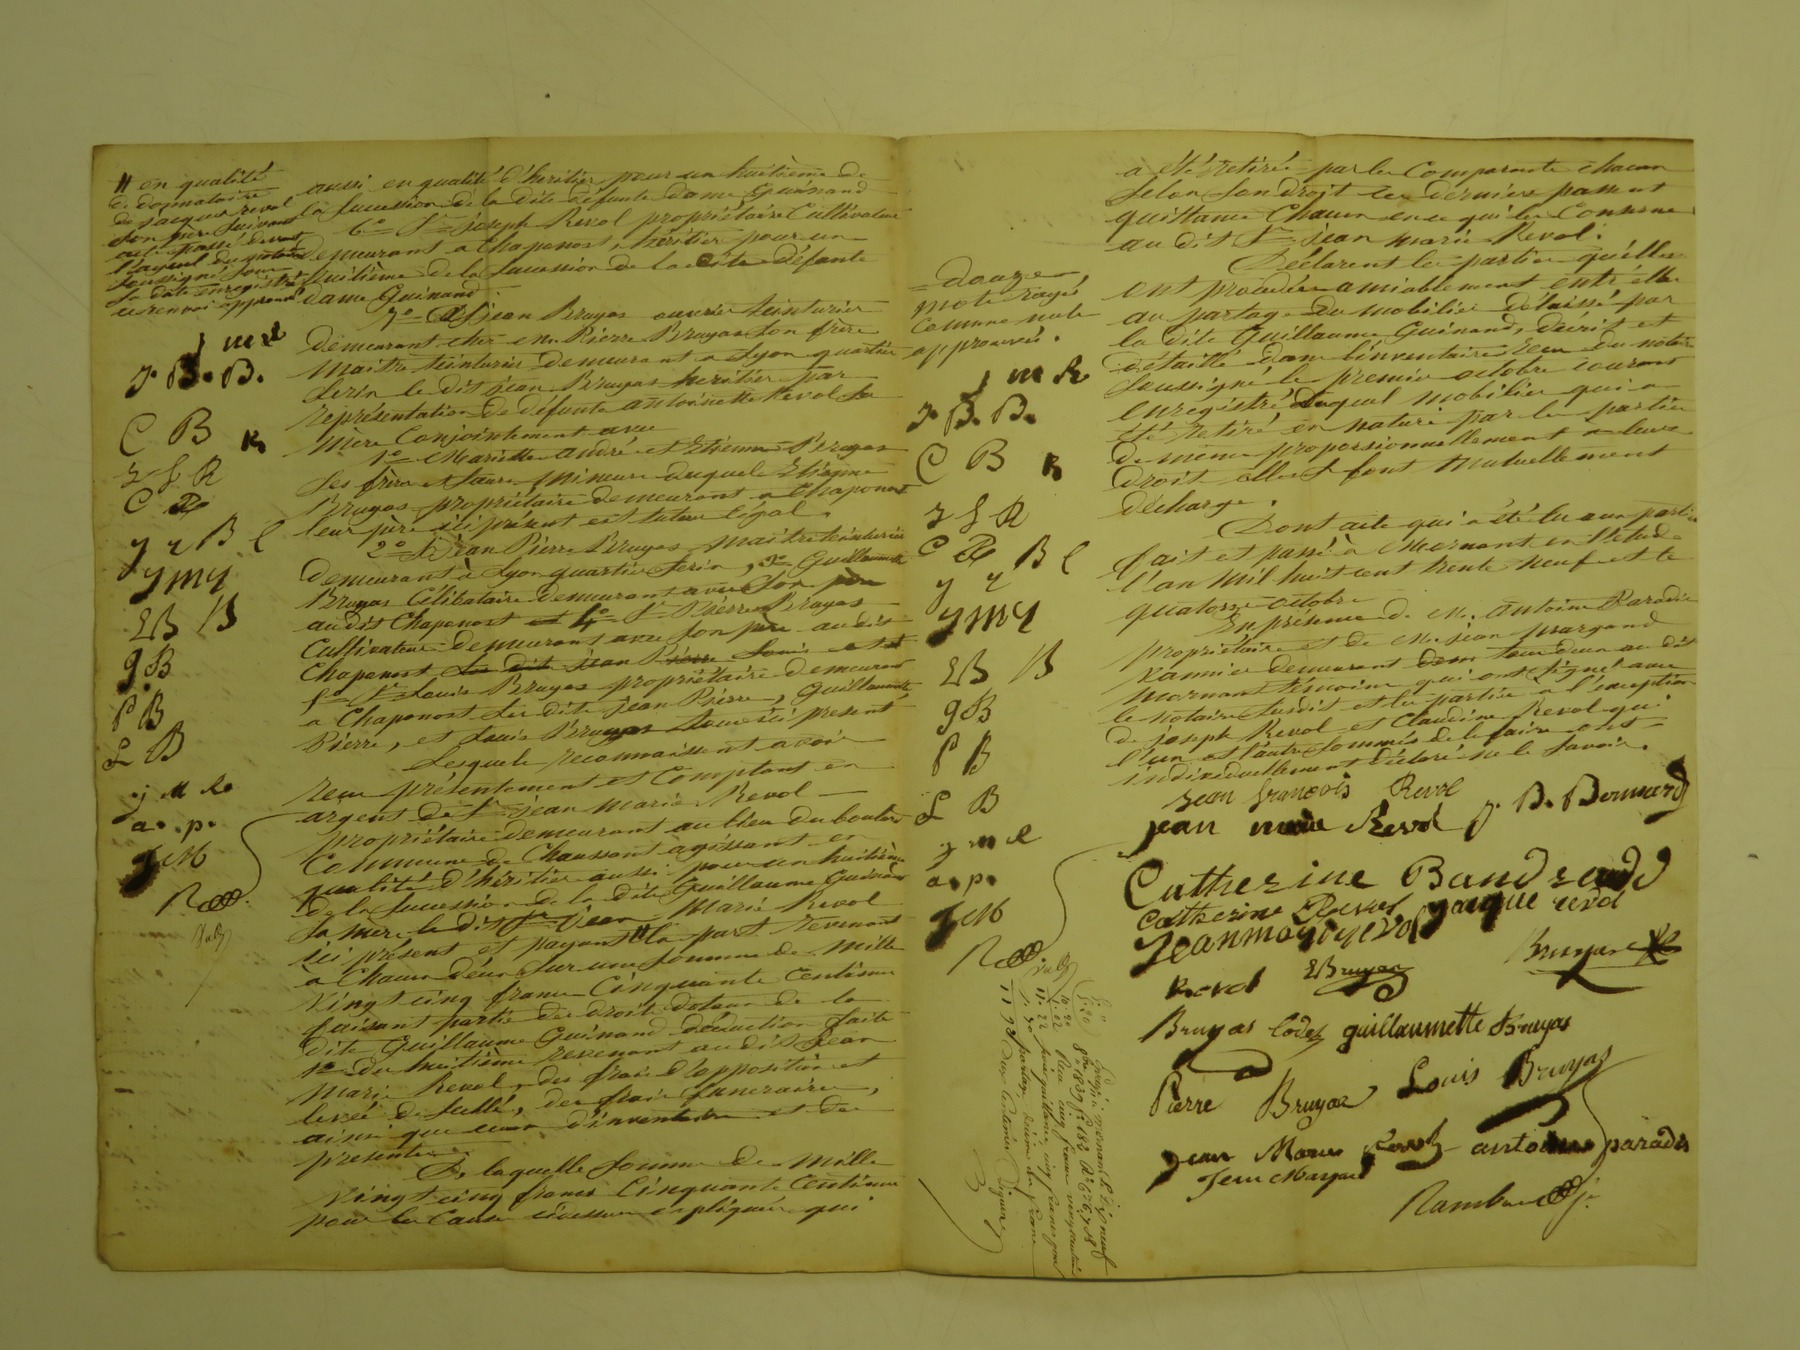 // en qualité
de donnataire
de Jacques Revol
son père suivant
acte passé devant
soussigné sous
sa date enregistré
ce renvoi approuvé
j m R
J. B. B.
C B R
J f R
C R
J y B C
J M Y
EB B
g B
P B
L B
j M R
a. p.
J M
aussi en qualité d'héritier pour un huitième de
la succession de la dite défunte dame Guinand
6° Sr joseph Revol propriétaire Cultivateur
demeurant a Chaponost, héritier pour un
huitième de la succession de la dite défunte
dame Guinand.
7° Sr jean Bruyas ouvrier teinturier
demeurant chez en Pierre Bruyas son frère
maitre teinturier demeurant a Lyon quartier
Serin le dit jean Bruyas heritier par
représentation de défunte antoinette Revol sa
mère Conjointement avec
1° Mariette andré et Etienne Bruyas
ses frère et sœurs mineurs duquels Etienne
Bruyas propriétaire demeurant a Chaponost
leur père ici présent est tuteur légal.
2° Sr Jean Pierre Bruyas maitre teinturier
demeurant à Lyon quartier Serin, 3° Guillaumette
Bruyas Célibataire demeurant avec son père
audit Chaponost et 4° Sr Pierre Bruyas
Cultivateur demeurant avec son père audit
Chaponost Les dits jean Pierre Louis et
5° Sr Louis Bruyas propriétaire demeurant
a Chaponost Les dits jean Pierre, Guillaumette
Pierre, et Louis Bruyas tous ici present
Lesquels reconnaissent avoir
reçu présentement et Comptant en
argent de Sr jean marie Revol
propriétaire demeurant au lieu du boulard
Commune de Chaussant agissant en
qualité d'héritier aussi pour un huitième
de la succession de la dite Guillaume Guinand
sa mère le dit Sr Jean Marie Revol
ici présent et payant // la part revenant
à Chacun d'eux sur une somme de mille
Vingt cinq francs Cinquante centimes
faisant partie des droits dotaux de la
dite Guillaume Guinand déduction faite
1° du huitième revenant au dit Jean
Marie Revol, des frais d'opposition et
levée de scellé, des frais funeraires,
ainsi que ceux d'inventaire et des
presentes.
De laquelle somme de mille
Vingt cinq francs Cinquante Centimes
pour les Causes cidessus expliquées qui
= douze
mots rayés
comme nuls
approuvés.
j m R
J. B. B.
C B R
J f R
C R B C
J y
J M Y
EB B
g B
P B
L B
j m R
a. p.
J M
a été retirée par les Comparants chacun
selon son droit ces derniers passent
quittance Chacun en ce qui les Concerne
au dit Sr jean marie Revol.
Déclarent les parties qu'elles
ont procédé amiablement entr'elles
au partage du mobilier délaissé par
la dite Guillaume Guinand, décrit et
détaillé dans l'inventaire reçu du notaire
soussigné le premier octobre courant
enregistré duquel mobilier qui a
été retiré en nature par les parties
de même proporsionnellement a leurs
droits elles se font mutuellement
décharge.
Dont acte qui a été lu aux parties
fait et passé à Mornant en l'étude
l'an mil huit cent trente neuf et le
quatorze octobre
En présence de Mr antoine Paradis
propriétaire et de Mr jean margand
Vannier demeurant tous deux au dit
mornant témoins qui ont signé avec
le notaire susdit et les parties a l'exception
de joseph Revol et Claudine Revol qui
l'un et l'autre sommés de le faire ont
individuellement déclaré ne le savoir.
Jean françois Revol
jean marie Revol J. B. Bonnard
Catherine Bandrand
Catherine Revol jacque revol
Revol EBruyas Bruyas
Bruyas guillaumette Bruyas
Pierre Bruyas Louis Bruyas
jean Marie Revol antoine paradis
Jean Margand